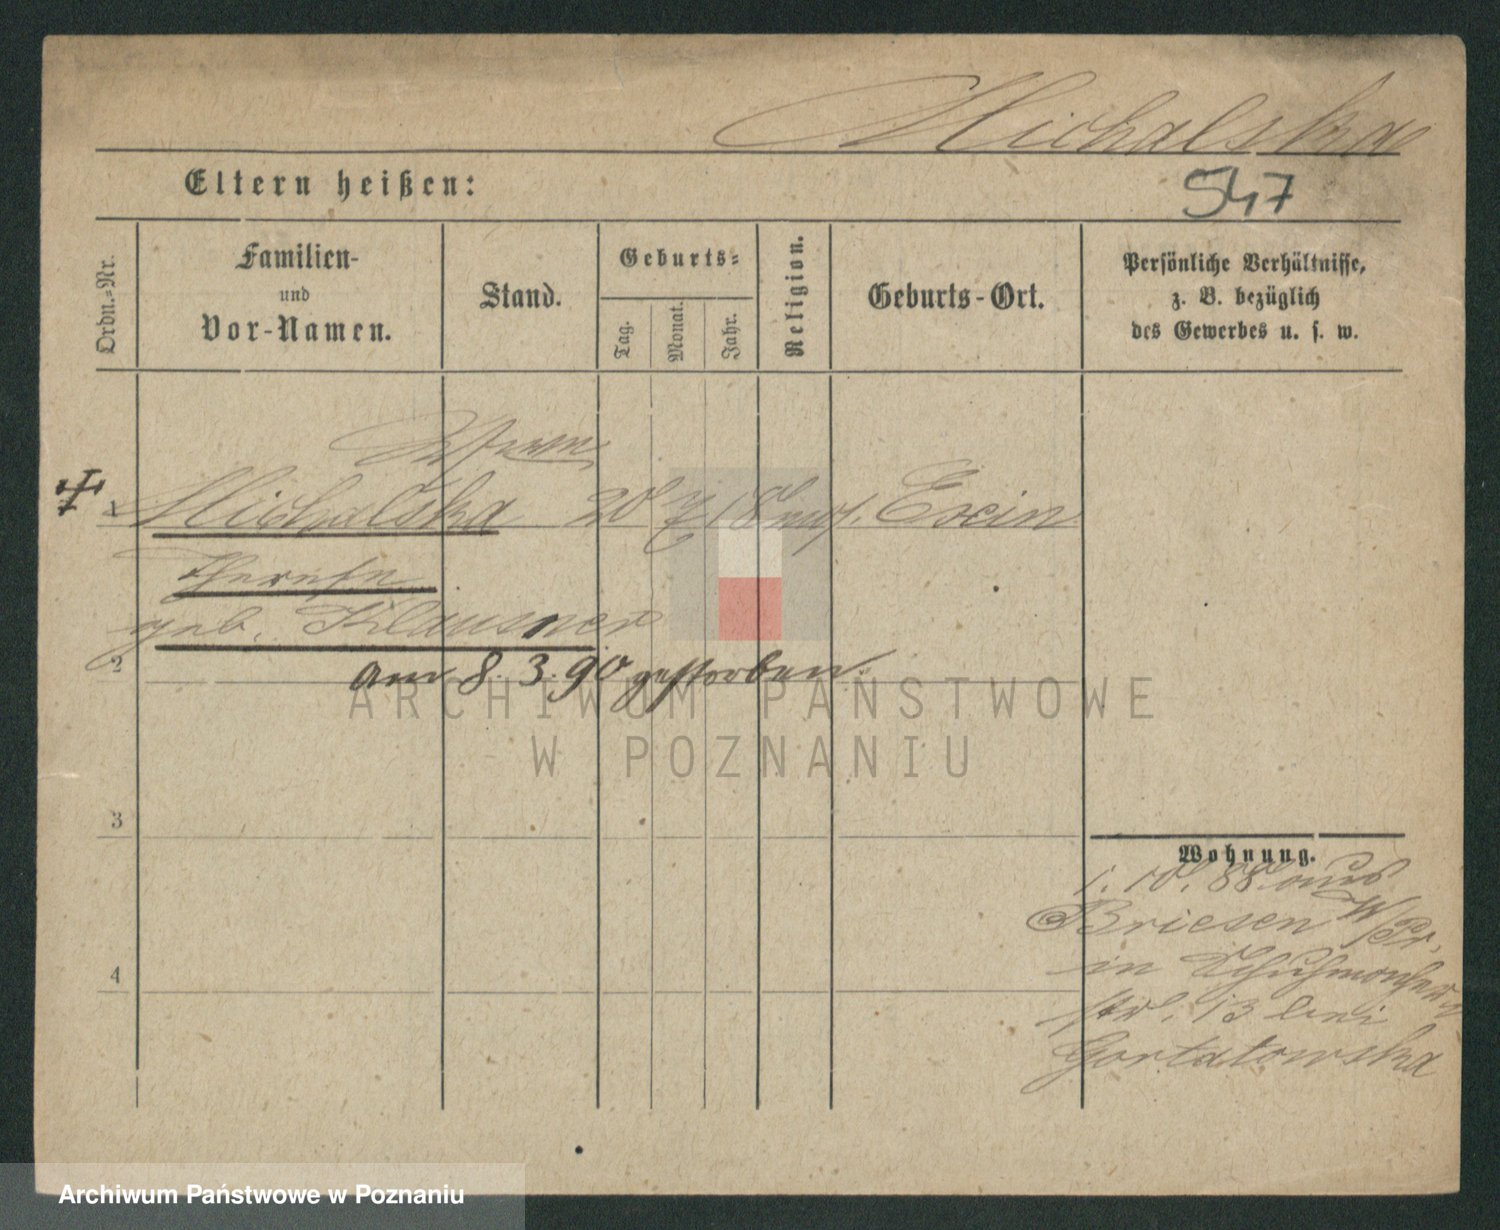 Michalska
Eltern heißen:
547
Ordn.-Nr.
Familien-
und
Vor-Namen.
Stand.
Geburts-
Tag.
Monat.
Jahr.
Religion.
Geburts-Ort.
Persönliche Verhältnisse,
z. B. bezüglich
des Gewerbes u. s. w.
1 Michalska 20 7 18 Exin
Therese
geb. Klausner
2
am 8. 3. 90 gestorben.
ARCHIWUM PAŃSTWOWE
W POZNANIU
3
Wohnung.
1. 10. 88 aus
Briesen W/Pr.
in Schuhmacher
str. 13 bei
Gortatowska
4
Archiwum Państwowe w Poznaniu